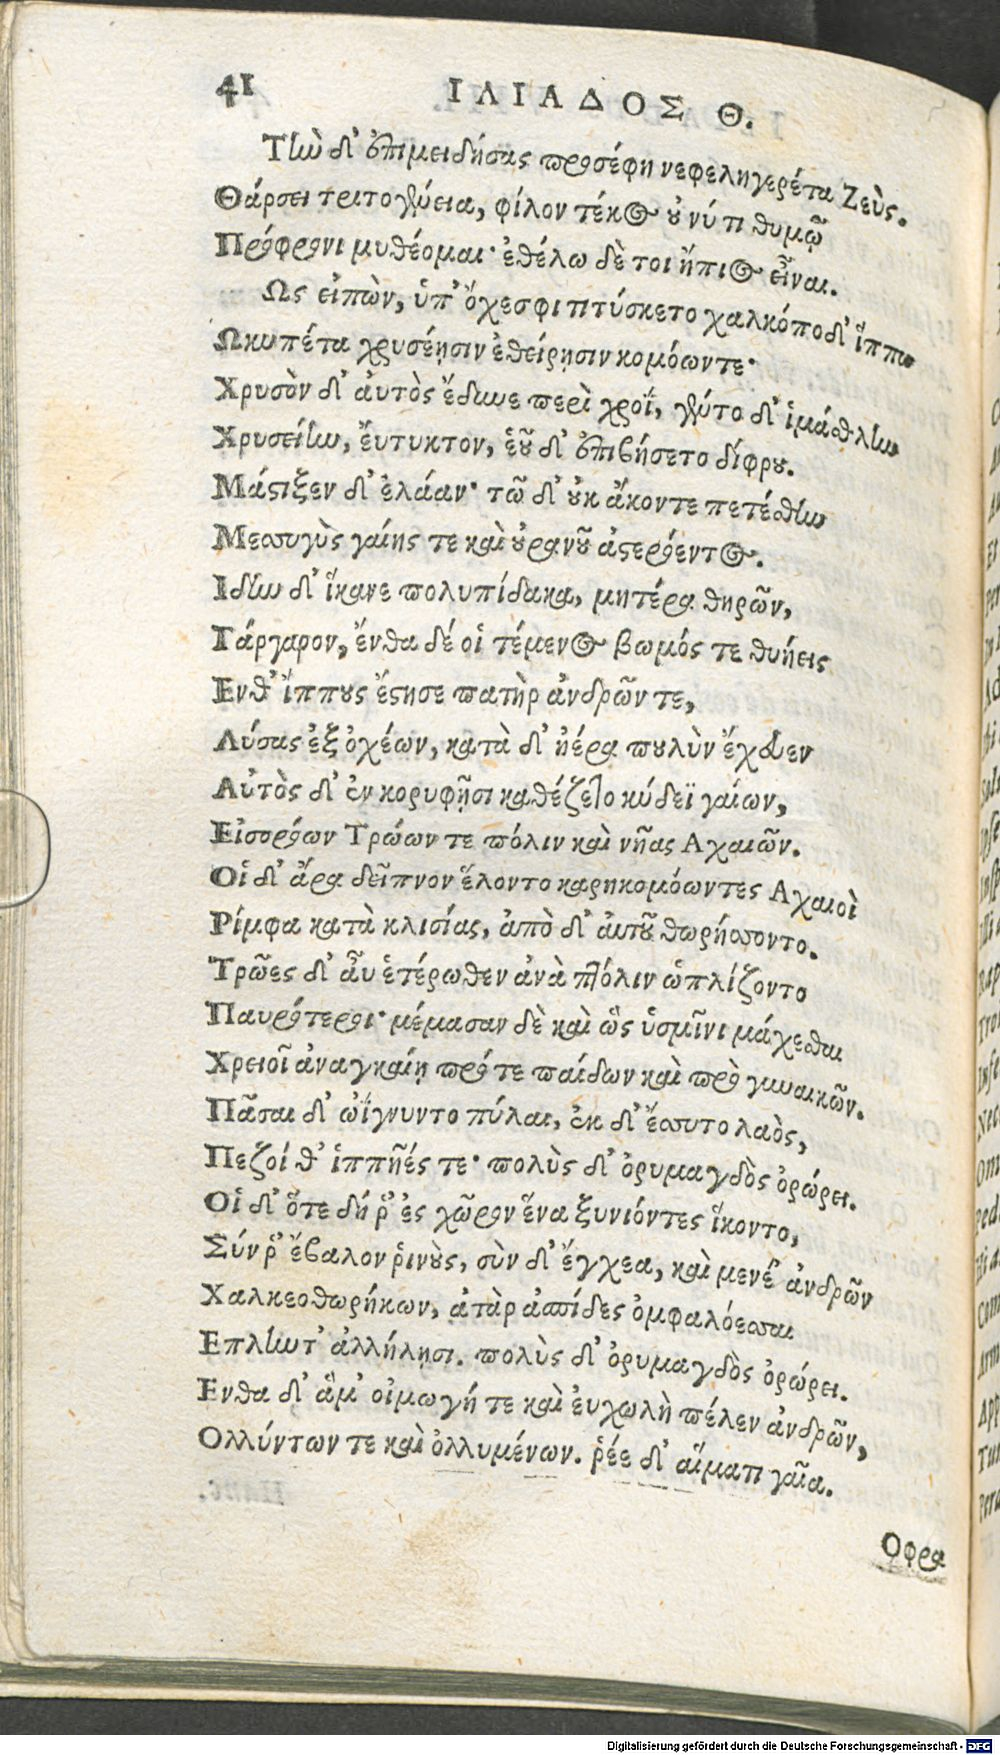 41
ΙΛΙΑΔΟΣ Θ.
Τὴν δ' ἐπιμειδήσας προσέφη νεφεληγερέτα Ζεὺς.
Θάρσει τριτογένεια, φίλον τέκος οὔ νύ τι θυμῷ
Πρόφρονι μυθέομαι· ἐθέλω δὲ τοι ἤπιος εἶναι.
Ως εἰπὼν, ὑπ' ὄχεσφι πτύσκετο χαλκόποδ' ἵππω
Ωκυπέτα χρυσέῃσιν ἐθείρῃσιν κομόωντε·
Χρυσὸν δ' ἀυτὸς ἔδυνε περὶ χροΐ, γέντο δ' ἱμάσθλην
Χρυσείην, ἔυτυκτον, ἑοῦ δ' ἐπιβήσετο δίφρου.
Μάστιξεν δ' ἐλάαν· τῶ δ' οὐκ ἄκοντε πετέσθην
Μεσσυγὺς γαίης τε καὶ οὐρανοῦ ἀστερόεντος.
Ιδην δ' ἵκανε πολυπίδακα, μητέρα θηρῶν,
Γάργαρον, ἔνθα δέ οἱ τέμενος βωμός τε θυήεις
Ενθ' ἵππους ἔστησε πατὴρ ἀνδρῶν τε,
Λύσας ἐξ ὀχέων, κατὰ δ' ἠέρα πουλὺν ἔχευεν
Αὐτὸς δ' ἐν κορυφῇσι καθέζετο κύδεϊ γαίων,
Εἰσορόων Τρώων τε πόλιν καὶ νῆας Αχαιῶν.
Οἱ δ' ἄρα δεῖπνον ἕλοντο καρηκομόωντες Αχαιοὶ
Ρίμφα κατὰ κλισίας, ἀπὸ δ' αὐτοῦ θωρήσσοντο.
Τρῶες δ' αὖ ἑτέρωθεν ἀνὰ πτόλιν ὡπλίζοντο
Παυρότεροι· μέμασαν δὲ καὶ ὣς ὑσμῖνι μάχεσθαι
Χρειοῖ ἀναγκαίῃ πρό τε παίδων καὶ πρὸ γυναικῶν.
Πᾶσαι δ' ὠΐγνυντο πύλαι, ἐκ δ' ἔσσυτο λαὸς,
Πεζοί θ' ἱππῆές τε· πολὺς δ' ὀρυμαγδὸς ὀρώρει.
Οἱ δ' ὅτε δή ῥ' ἐς χῶρον ἕνα ξυνιόντες ἵκοντο,
Σύν ῥ' ἔβαλον ῥινοὺς, σὺν δ' ἔγχεα, καὶ μενέ' ἀνδρῶν
Χαλκεοθωρήκων, ἀτὰρ ἀσπίδες ὀμφαλόεσσαι
Επληντ' ἀλλήλῃσι. πολὺς δ' ὀρυμαγδὸς ὀρώρει.
Ενθα δ' ἅμ' οἰμωγή τε καὶ ἐυχωλὴ πέλεν ἀνδρῶν,
Ολλύντων τε καὶ ὀλλυμένων. ῥέε δ' αἵματι γαῖα.
Οφρα
Digitalisierung gefördert durch die Deutsche Forschungsgemeinschaft - DFG